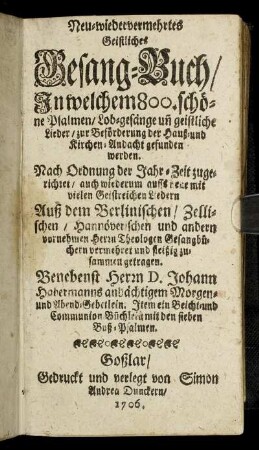 Neu-wiedervermehrtes
Geistliches
Gesang-Buch/
In welchem 800. schö-
ne Psalmen/ Lob-gesänge uñ geistliche
Lieder/ zur Beförderung der Hauß-und
Kirchen-Andacht gefunden
werden.
Nach Ordnung der Jahr-Zeit zuge-
richtet/ auch wiederum auffs neue mit
vielen Geistreichen Liedern
Auß dem Berlinischen/ Zelli-
schen/ Hannöverschen und andern
vornehmen Herrn Theologen Gesangbü-
chern vermehret und fleißig zu-
sammen getragen.
Benebenst Herrn D. Johann
Habermanns andächtigem Morgen-
und Abend-Gebetlein. Item ein Beicht-und
Communion Büchlein mit den sieben
Buß-Psalmen.
Goßlar/
Gedruckt und verlegt von Simon
Andrea Dunckern/
1706.